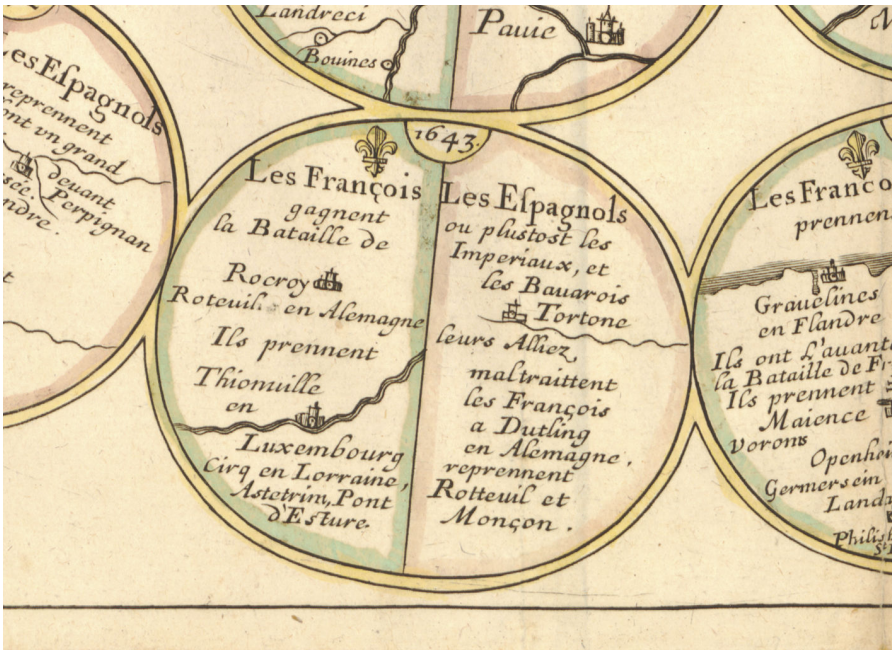 Landreci
Bouines
Pavie
Les Espagnols
reprennent
ont vn grand
devant
Perpignan
1643.
Les François
gagnent
la Bataille de
Rocroy
Roteuil en Alemagne
Ils prennent
Thionuille
en
Luxembourg
Cirq en Lorraine,
Astetrim, Pont
d'Esture.
Les Espagnols
ou plustost les
Imperiaux, et
les Bavarois
Tortone
leurs Alliez,
maltraittent
les François
a Dutling
en Alemagne,
reprennent
Rotteuil et
Monçon.
Les Franco
prennen
Gravelines
en Flandre
Ils ont L'avant
la Bataille de Fr
Ils prennent
Maience
Vorons
Openhei
Germersein
Landa
Philis